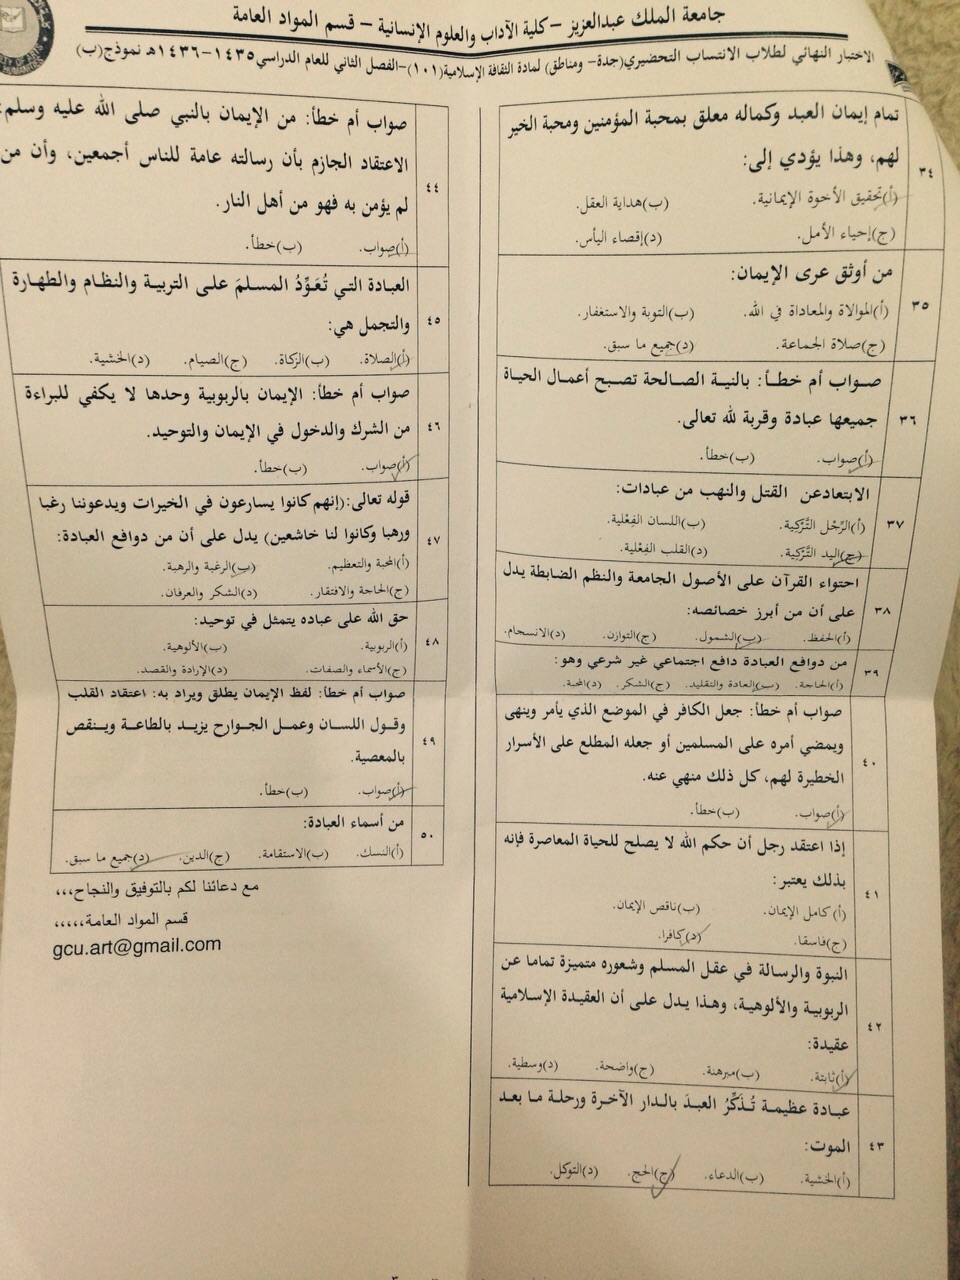 جامعة الملك عبدالعزيز – كلية الآداب والعلوم الإنسانية – قسم المواد العامة
الاختبار النهائي لطلاب الانتساب التحضيري(جدة- ومناطق) لمادة الثقافة الإسلامية(١٠١)-الفصل الثاني للعام الدراسي١٤٣٥-١٤٣٦هـ نموذج(ب)
٣٤
تمام إيمان العبد وكماله معلق بمحبة المؤمنين ومحبة الخير
لهم، وهذا يؤدي إلى:
(أ)تحقيق الأخوة الإيمانية. (ب)هداية العقل.
(ج)إحياء الأمل. (د)إقصاء اليأس.
٣٥
من أوثق عرى الإيمان:
(أ)الموالاة والمعاداة في الله. (ب)التوبة والاستغفار.
(ج)صلاة الجماعة. (د)جميع ما سبق.
٣٦
صواب أم خطأ: بالنية الصالحة تصبح أعمال الحياة
جميعها عبادة وقربة لله تعالى.
(أ)صواب. (ب)خطأ.
٣٧
الابتعادعن القتل والنهب من عبادات:
(أ)الرِّجْل التَّرْكِية. (ب)اللسان الفِعْلية.
(ج)اليد التَّرْكِية. (د)القلب الفِعْلية.
٣٨
احتواء القرآن على الأصول الجامعة والنظم الضابطة يدل
على أن من أبرز خصائصه:
(أ)الحفظ. (ب)الشمول. (ج)التوازن. (د)الانسجام.
٣٩
من دوافع العبادة دافع اجتماعي غير شرعي وهو:
(أ)الحاجة. (ب)العادة والتقليد. (ج)الشكر. (د)المحبة.
٤٠
صواب أم خطأ: جعل الكافر في الموضع الذي يأمر وينهى
ويمضي أمره على المسلمين أو جعله المطلع على الأسرار
الخطيرة لهم، كل ذلك منهي عنه.
(أ)صواب. (ب)خطأ.
٤١
إذا اعتقد رجل أن حكم الله لا يصلح للحياة المعاصرة فإنه
بذلك يعتبر:
(أ)كامل الإيمان. (ب)ناقص الإيمان.
(ج)فاسقا. (د)كافرا.
٤٢
النبوة والرسالة في عقل المسلم وشعوره متميزة تماما عن
الربوبية والألوهية، وهذا يدل على أن العقيدة الإسلامية
عقيدة:
(أ)ثابتة. (ب)مبرهنة. (ج)واضحة. (د)وسطية.
٤٣
عبادة عظيمة تُذَكِّرُ العبدَ بالدار الآخرة ورحلة ما بعد
الموت:
(أ)الخشية. (ب)الدعاء. (ج)الحج. (د)التوكل.
٤٤
صواب أم خطأ: من الإيمان بالنبي صلى الله عليه وسلم:
الاعتقاد الجازم بأن رسالته عامة للناس أجمعين، وأن من
لم يؤمن به فهو من أهل النار.
(أ)صواب. (ب)خطأ.
٤٥
العبادة التي تُعَوِّدُ المسلمَ على التربية والنظام والطهارة
والتجمل هي:
(أ)الصلاة. (ب)الزكاة. (ج)الصيام. (د)الخشية.
٤٦
صواب أم خطأ: الإيمان بالربوبية وحدها لا يكفي للبراءة
من الشرك والدخول في الإيمان والتوحيد.
(أ)صواب. (ب)خطأ.
٤٧
قوله تعالى:(إنهم كانوا يسارعون في الخيرات ويدعوننا رغبا
ورهبا وكانوا لنا خاشعين) يدل على أن من دوافع العبادة:
(أ)المحبة والتعظيم. (ب)الرغبة والرهبة.
(ج)الحاجة والافتقار. (د)الشكر والعرفان.
٤٨
حق الله على عباده يتمثل في توحيد:
(أ)الربوبية. (ب)الألوهية.
(ج)الأسماء والصفات. (د)الإرادة والقصد.
٤٩
صواب أم خطأ: لفظ الإيمان يطلق ويراد به: اعتقاد القلب
وقول اللسان وعمل الجوارح يزيد بالطاعة وينقص
بالمعصية.
(أ)صواب. (ب)خطأ.
٥٠
من أسماء العبادة:
(أ)النسك. (ب)الاستقامة. (ج)الدين. (د)جميع ما سبق.
مع دعائنا لكم بالتوفيق والنجاح،،،
قسم المواد العامة،،،،،
gcu.art@gmail.com